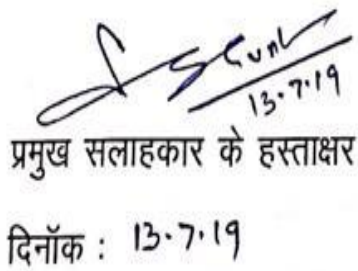 13.7.19
प्रमुख सलाहकार के हस्ताक्षर
दिनॉक : 13.7.19